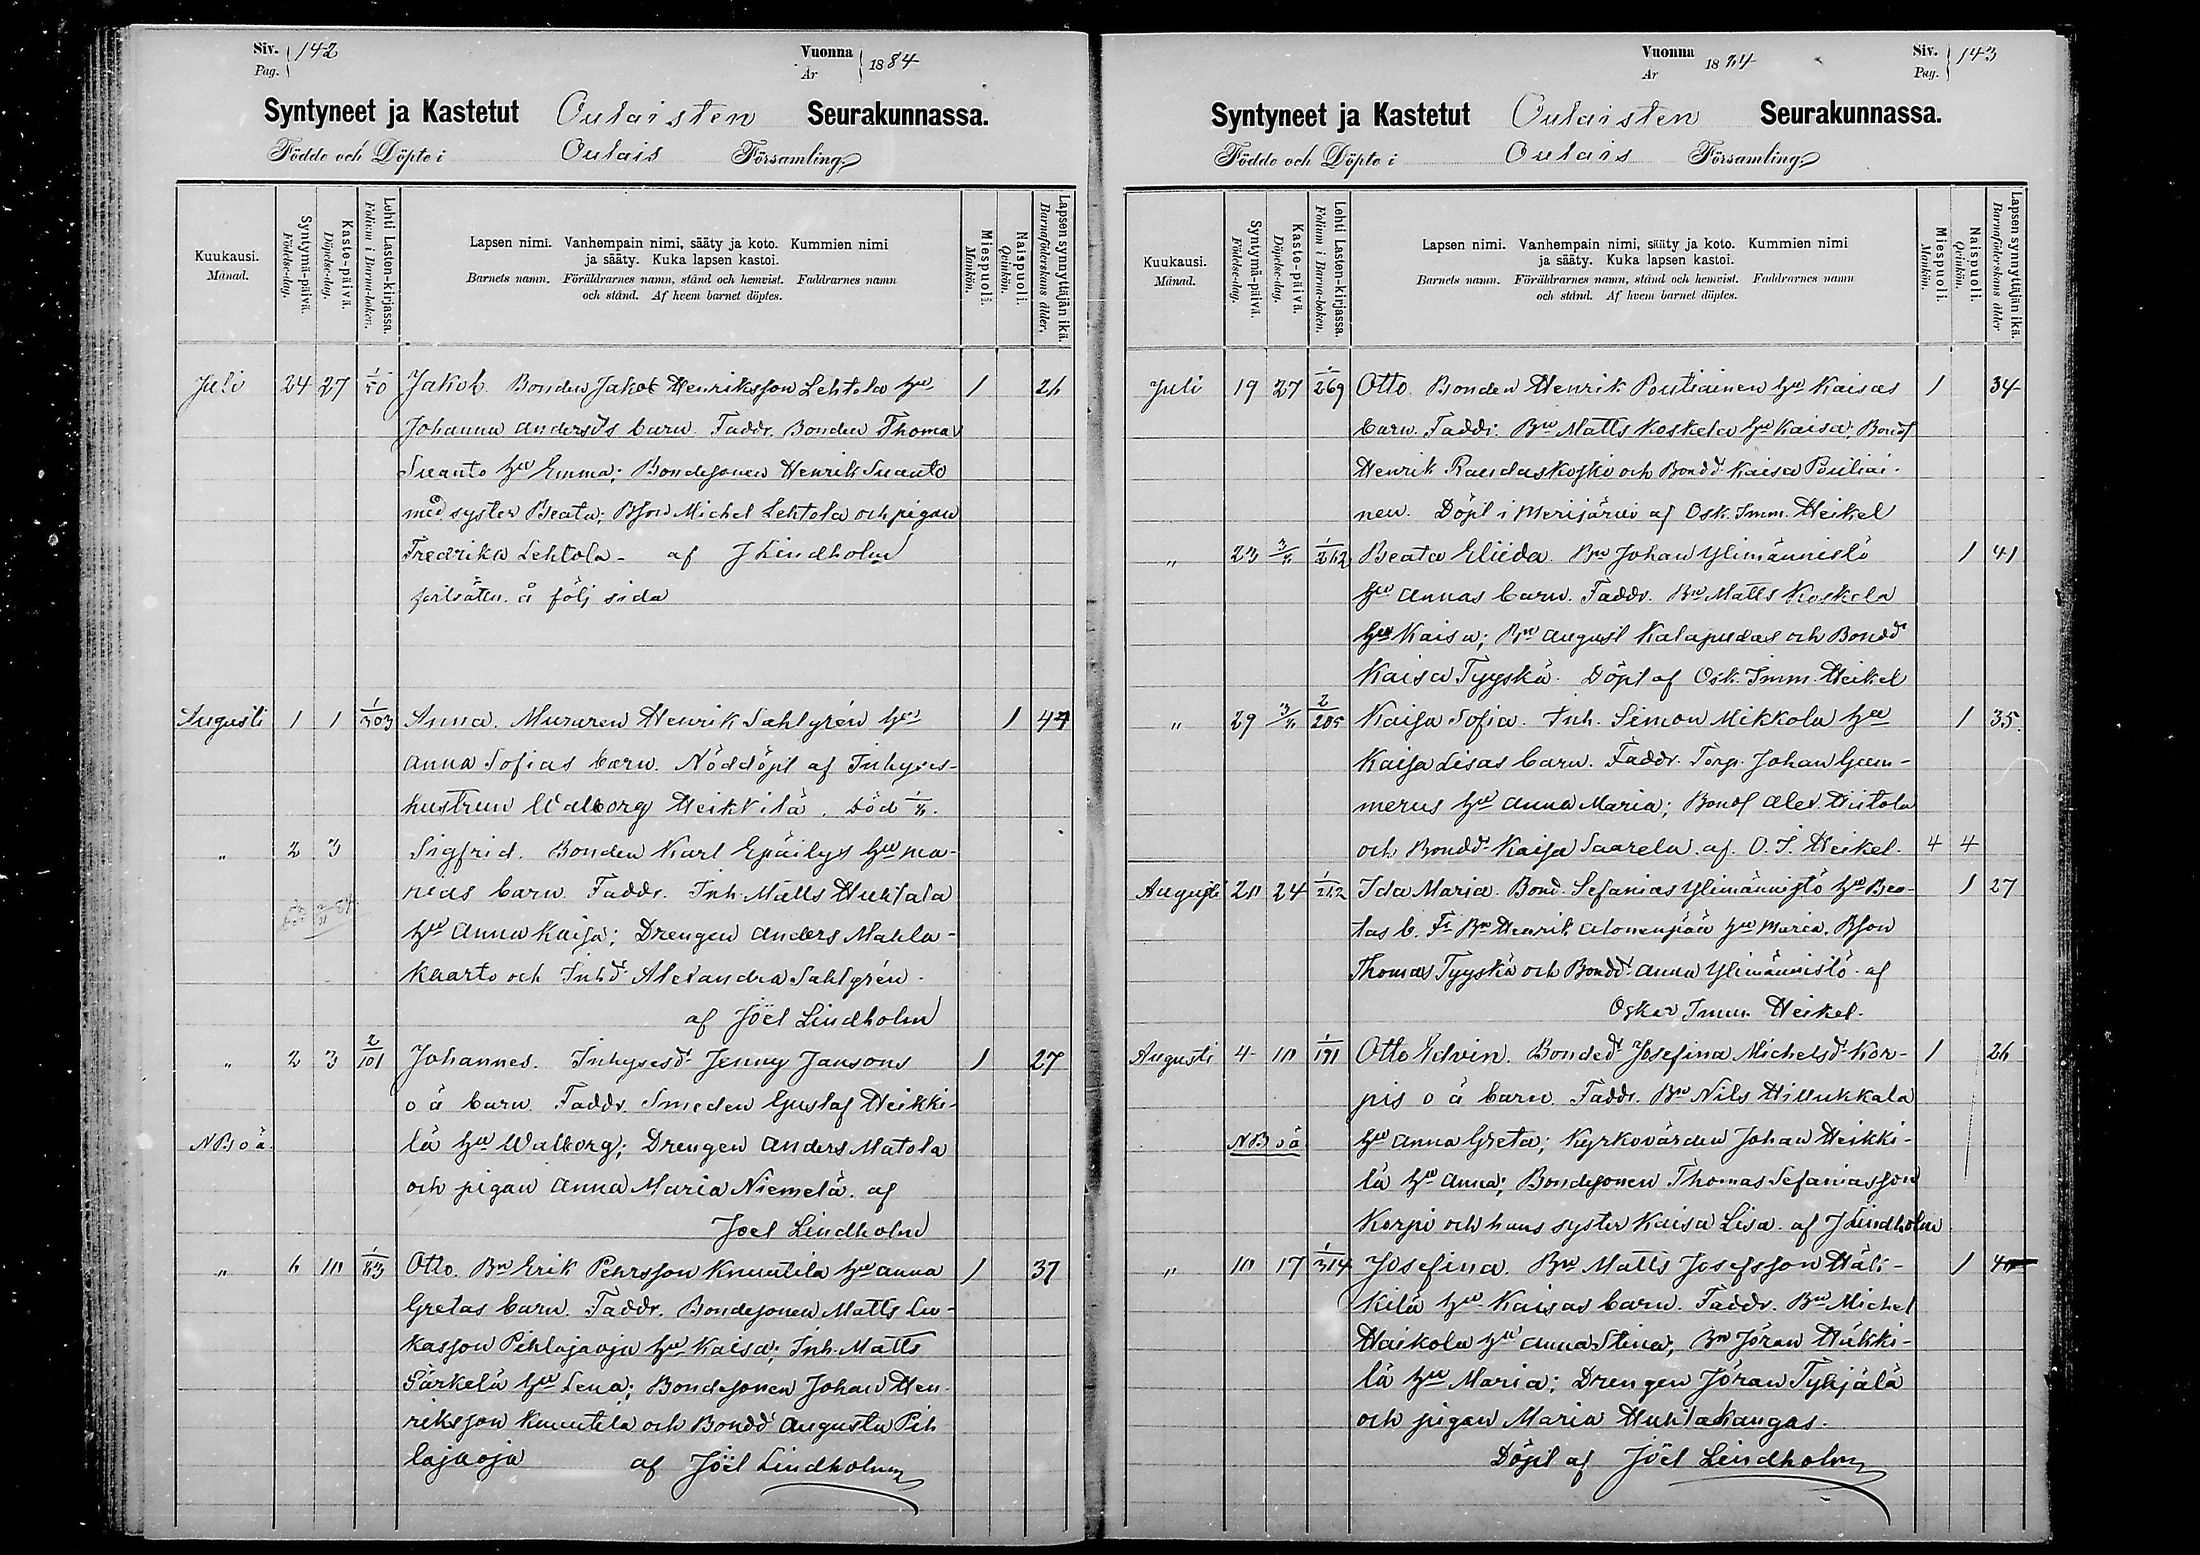 Siv. 142
Pag.
Vuonna 1884
År
Syntyneet ja Kastetut Oulaisten Seurakunnassa.
Födde och Döpte i Oulais Församling.
Kuukausi.
Månad.
Syntymä-päivä.
Födelse-dag.
Kaste-päivä.
Döpelse-dag.
Lehti Lasten-kirjassa.
Folium i Barna-boken.
Lapsen nimi. Vanhempain nimi, sääty ja koto. Kummien nimi
ja sääty. Kuka lapsen kastoi.
Barnets namn. Föräldrarnes namn, stånd och hemvist. Faddrarnes namn
och stånd. Af hvem barnet döptes.
Miespuoli.
Mankön.
Naispuoli.
Qvinkön.
Lapsen synnyttäjän ikä.
Barnaföderskans ålder.
Juli 24 27 1/50 Jakob. Bonden Jakob Henriksson Lehtola hu 1 26
Johanna Andersd:s barn. Faddr. Bonden Thomas
Suanto hu Emma; Bondesonen Henrik Suanto
med syster Beata; Bson Michel Lehtola och pigan
Fredrika Lehtola - af J Lindholm
fortsättn. å följ sida
Augusti 1 1 1/303 Anna. Muraren Henrik Sahlgrén hu 1 44
Anna Sofias barn. Nöddöpt af Inhyses-
hustrun Walborg Heikkilä. Död 1/8.
" 2 3 Sigfrid. Bonden Karl Epäilys hu Ma-
rias barn. Faddr. Inh. Matts Huhtala
hu Anna Kaisa; Drengen Anders Mahla-
kaarto och Inhd. Alexandra Sahlgrén.
af Joël Lindholm
" 2 3 2/101 Johannes. Inhysesd. Jenny Jansons 1 27
o ä barn. Faddr. Smeden Gustaf Heikki-
NB o ä. lä hu Walborg; Drengen Anders Matola
och pigan Anna Maria Niemelä. af
Joel Lindholm
" 6 10 1/83 Otto. Bn Erik Pehrsson Knuutila hu Anna 1 37
Gretas barn. Faddr. Bondesonen Matts Lu-
kasson Pihlajaoja hu Kaisa; Inh. Matts
Särkelä hu Lena; Bondesonen Johan Hen-
riksson Knuutila och Bondd Augusta Pih
lajaoja af Joël Lindholm
Vuonna 1884
År
Siv. 143
Pag.
Syntyneet ja Kastetut Oulaisten Seurakunnassa.
Födde och Döpte i Oulais Församling.
Kuukausi.
Månad.
Syntymä-päivä.
Födelse-dag.
Kasto-päivä.
Döpelse-dag.
Lehti Lasten-kirjassa.
Folium i Barna-boken.
Lapsen nimi. Vanhempain nimi, sääty ja koto. Kummien nimi
ja sääty. Kuka lapsen kastoi.
Barnets namn. Föräldrarnes namn, stånd och hemvist. Faddrarnes namn
och stånd. Af hvem barnet döptes.
Miespuoli.
Mankön.
Naispuoli.
Qvinkön.
Lapsen synnyttäjän ikä.
Barnaföderskans ålder
Juli 19 27 1/269 Otto. Bonden Henrik Poutiainen hu Kaisas 1 34
barn. Faddr. Bn Matts Koskela hu Kaisa; Bonds
Henrik Raudaskoski och Bondd. Kaisa Poutiai-
nen. Döpt i Merijärvi af Osk. Imm. Heikel
" 23 3/8 1/212 Beata Eliida. Bn Johan Ylimännistö 1 41
hu Annas barn. Faddr. Bn Matts Koskela
hu Kaisa; Bn August Kalapudas och Bondd
Kaisa Tyyskä. Döpt af Osk. Imm. Heikel
" 29 3/8 2/205 Kaisa Sofia. Inh. Simon Mikkola hu 1 35.
Kaisa Lisas barn. Faddr. Torp. Johan Gum-
merus hu Anna Maria; Bonds Alex. Hirtola
och Bondd. Kaisa Saarela. af O. I. Heikel. 4 4
Augusti 20 24 1/212 Ida Maria. Bond. Sefanias Ylimännistö hu Bea- 1 27
tas b. Fr Bn Henrik Alonenpää hu Maria. Bson
Thomas Tyyskä och Bondd. Anna Ylimännistö. af
Oskar Imm. Heikel.
Augusti 4 10 1/191 Otto Edvin. Bonded. Josefina Michelsd. Kor- 1 26
pis o ä barn. Faddr. Bn Nils Hillukkala
NB o ä hu Anna Greta; Kyrkovärden Johan Heikki-
lä hu Anna; Bondesonen Thomas Sefaniasson
Korpi och hans syster Kaisa Lisa. af J Lindholm
" 10 17 1/314 Josefina. Bn Matts Josefsson Häli- 1
kilä hu Kaisas barn. Faddr. Bn Michel
Haikola hu Anna Stina; Bn Jöran Häkki-
lä hu Maria; Drengen Jöran Tykjälä
och pigan Maria Huhtakangas.
Döpt af Joël Lindholm